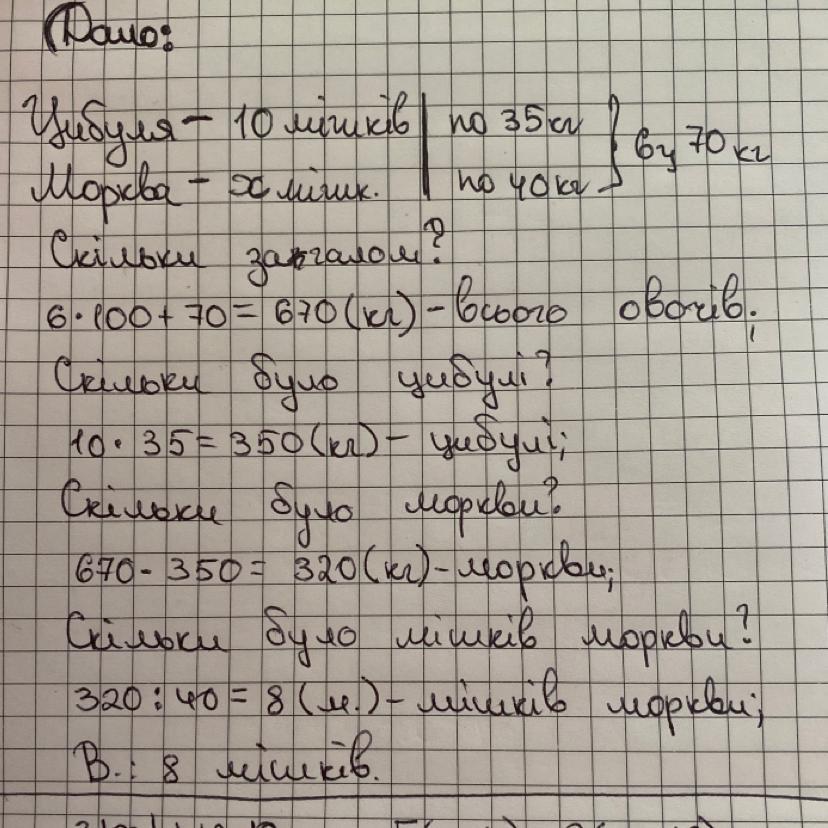 Дано:
Цибуля - 10 мішків | по 35 кг } 6ц 70 кг
Морква - х мішк. | по 40 кг
Скільки загалом?
6·100+70=670(кг)-всього овочів;
Скільки було цибулі?
10·35=350(кг)-цибулі;
Скільки було моркви?
670-350=320(кг)-моркви;
Скільки було мішків моркви?
320:40=8(м.)-мішків моркви;
В.: 8 мішків.